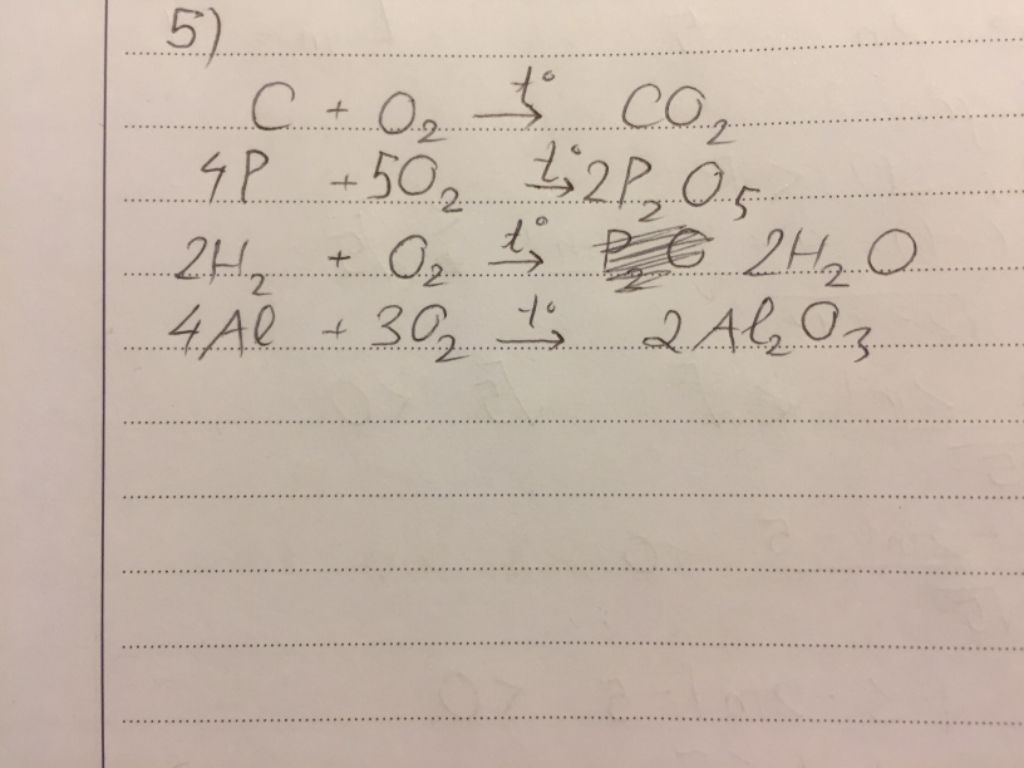 5)
C + O₂ →t° CO₂
4P + 5O₂ →t° 2P₂O₅
2H₂ + O₂ →t° 2H₂O
4Al + 3O₂ →t° 2Al₂O₃